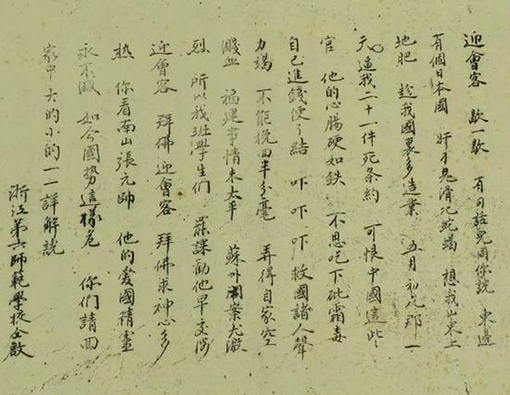 迎會客 歇一歇 有句話兒同你說 東邊
有個日本國 奸刁鬼滑比蛇蝎 想我山東土
地肥 趁我國裏多造業 五月初九那一
天 逼我二十一件死條約 可恨中國這些
官 他的心腸硬如鉄 不思吃下砒霜毒
自己進錢便了結 吓 吓 吓 救國諸人聲
力竭 不能挽回半分毫 弄得自家空
濺血 福建事情未太平 蘇州案尤激
烈 所以我班學生們 罷課勸他早交涉
迎會客 拜佛迎會客 拜佛求神心多
熱 你看南山張元帥 他的愛國精靈
永不滅 如今國勢這樣危 你們請回
家中 大的小的一一詳解說
浙江第六師範學校仝啟